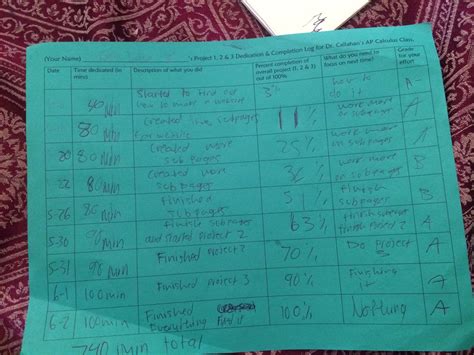 (Your Name) 's Project 1, 2 & 3 Dedication & Completion Log for Dr. Callahan's AP Calculus Class.
Date Time dedicated (in mins) Description of what you did Percent completion of overall project (1, 2 & 3) out of 100%. What do you need to focus on next time? Grade for your effort
min Started to find out how to make a website 8% how to do it A
80 min Created subpages for website 11% work more on subpages A
20 80 min Created more subpages 25% work more on subpages A
22 80 min Created more subpages work more on subpages B
5-26 80 min finished subpages 51% finish subpages B
5-30 min finish subpages and started project 2 63% finish A
5-31 90 min Finished project 2 70% Do project 3 A
6-1 100 min Finished project 3 90% Finishing it A
6-2 100 min Finished Everything 100% Nothing A
740 min total